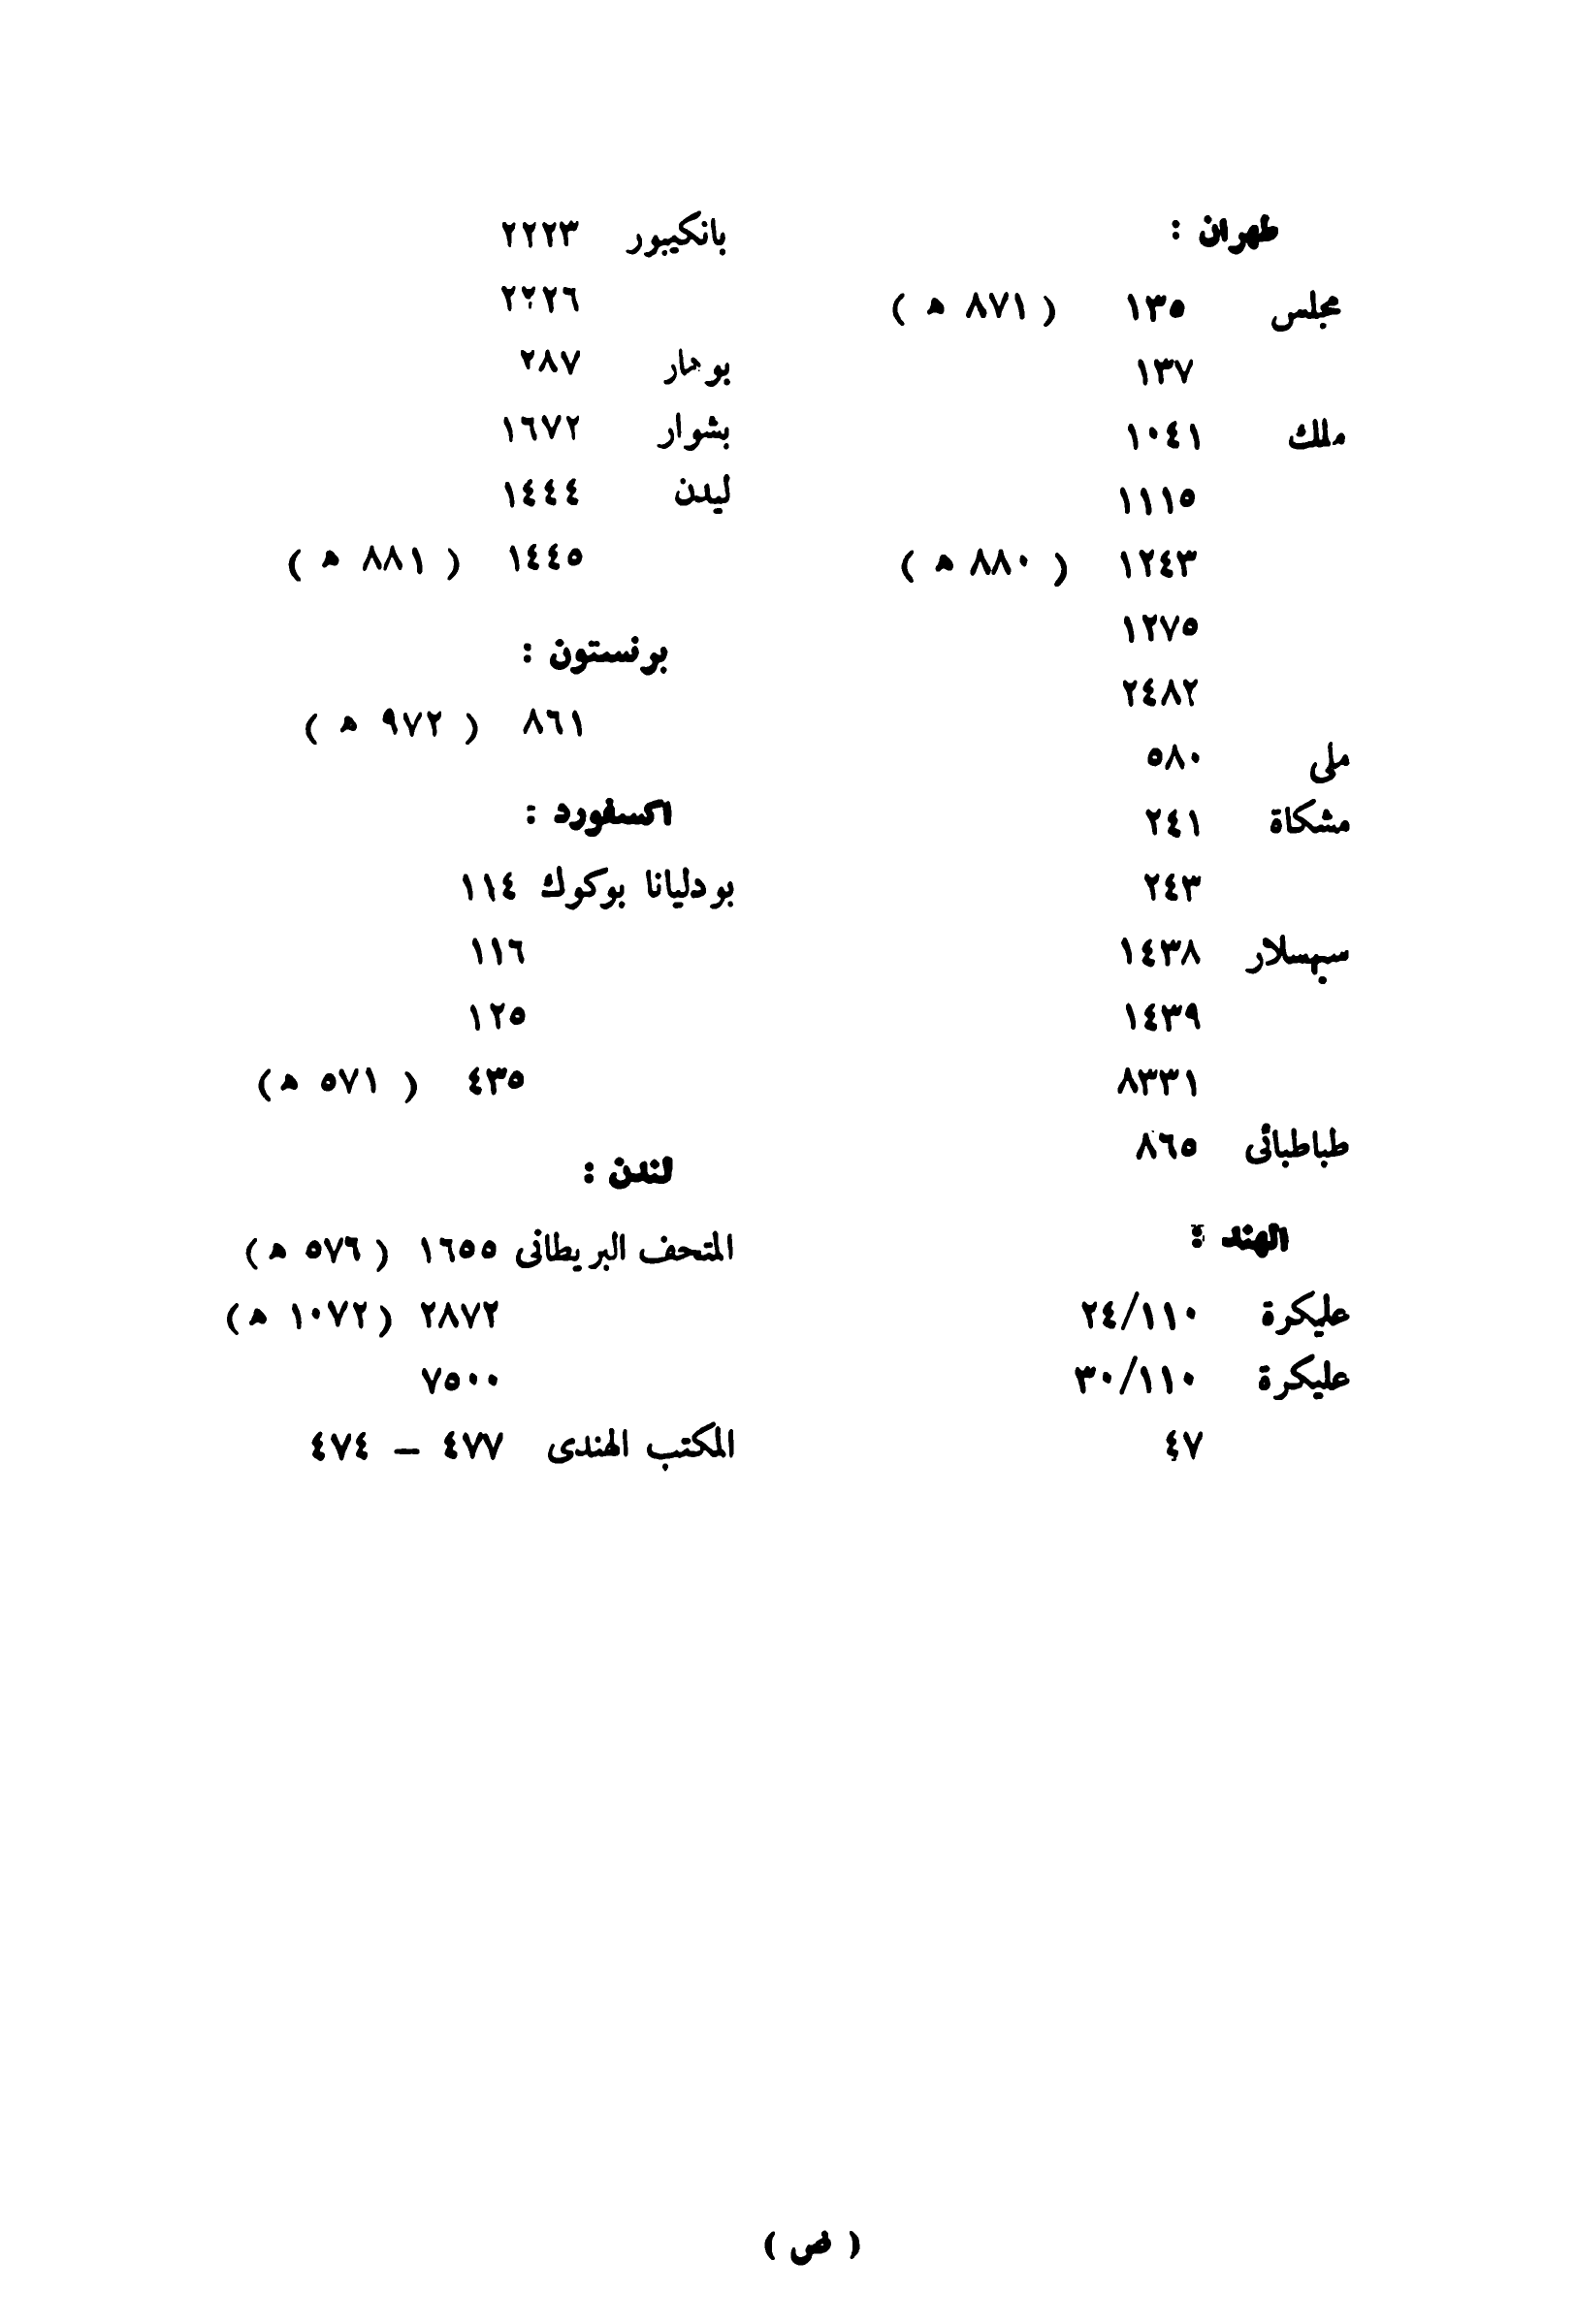 طهران :
مجلس ١٣٥ ( ٨٧١ ه )
١٣٧
ملك ١٠٤١
١١١٥
١٢٤٣ ( ٨٨٠ ه )
١٢٧٥
٢٤٨٢
ملى ٥٨٠
مشكاة ٢٤١
٢٤٣
سبهسلار ١٤٣٨
١٤٣٩
٨٣٣١
طباطبائى ٨٦٥
الهند :
عليكرة ٢٤/١١٠
عليكرة ٣٠/١١٠
٤٧
بانكيبور ٢٢٢٣
٢٢٢٦
بوهار ٢٨٧
بشوار ١٦٧٢
ليدن ١٤٤٤
١٤٤٥ ( ٨٨١ ه )
برنستون :
٨٦١ ( ٩٧٢ ه )
اكسفورد :
بودليانا بوكوك ١١٤
١١٦
١٢٥
٤٣٥ ( ٥٧١ ه )
لندن :
المتحف البريطانى ١٦٥٥ ( ٥٧٦ ه )
٢٨٧٢ ( ١٠٧٢ ه )
٧٥٠٠
المكتب الهندى ٤٧٧ – ٤٧٤
( ض )